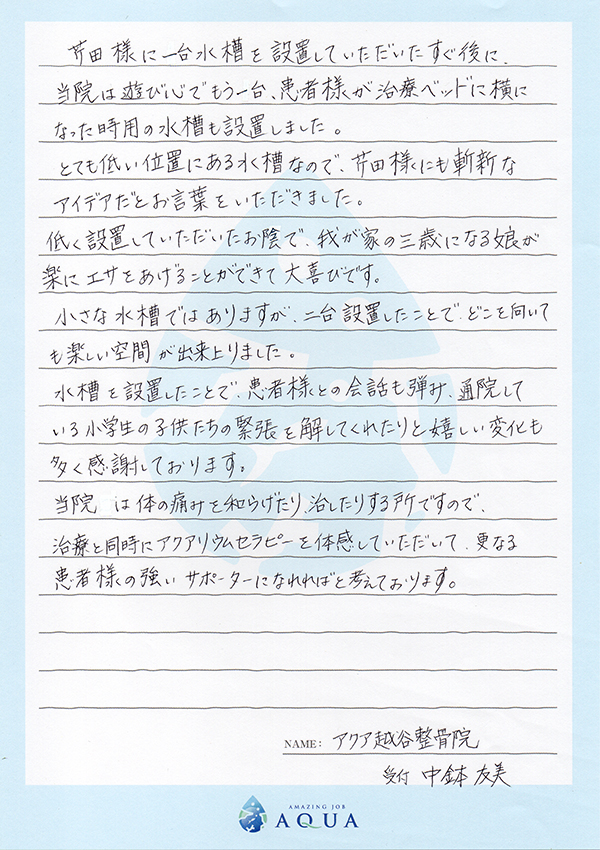 芹田様に一台水槽を設置していただいたすぐ後に、
当院は遊び心でもう一台、患者様が治療ベッドに横に
なった時用の水槽も設置しました。
とても低い位置にある水槽なので、芹田様にも斬新な
アイデアだとお言葉をいただきました。
低く設置していただいたお陰で、我が家の三歳になる娘が
楽にエサをあげることができて大喜びです。
小さな水槽ではありますが、二台設置したことで、どこを向いて
も楽しい空間が出来上りました。
水槽を設置したことで、患者様との会話も弾み、通院して
いる小学生の子供たちの緊張を解してくれたりと嬉しい変化も
多く感謝しております。
当院 は体の痛みを和らげたり、治したりする所ですので、
治療と同時にアクアリウムセラピーを体感していただいて、更なる
患者様の強いサポーターになれればと考えております。
NAME: アクア越谷整骨院
受付 中鉢 友美
AMAZING JOB
AQUA